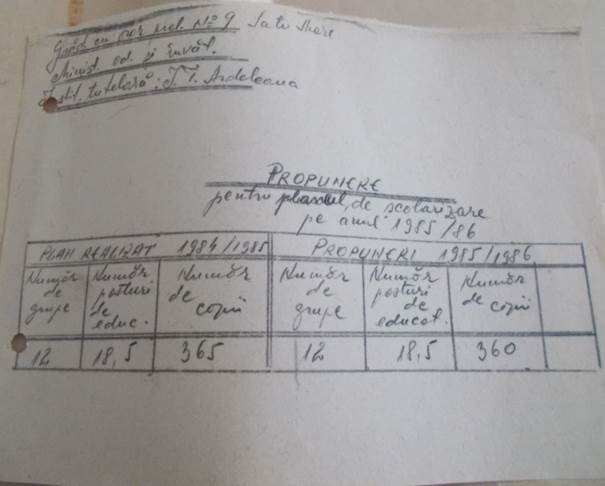 Grăd. cu orar prel. Nº 9 Satu Mare
Minist. ed. și învăț.
Instit. tutelară: I. T. Ardeleana
PROPUNERE
pentru planul de școlarizare
pe anul 1985/86
PLAN REALIZAT 1984/1985 PROPUNERI 1985/1986
Număr de grupe Număr posturi de educ. Număr de copii Număr de grupe Număr posturi de educat. Număr de copii
12 18,5 365 12 18,5 360